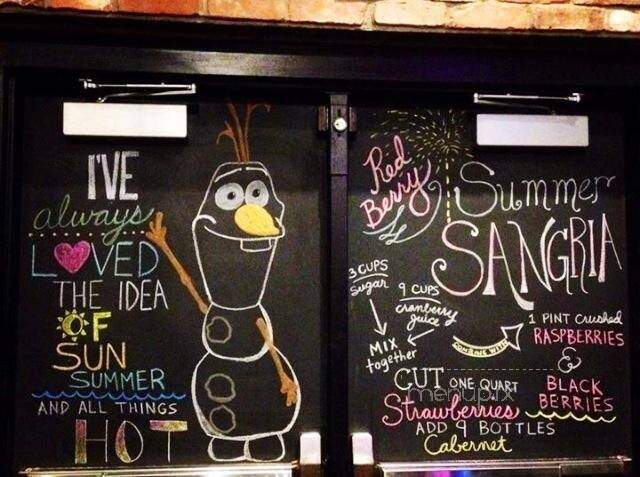 I'VE
always
LOVED
THE IDEA
OF
SUN
SUMMER
AND ALL THINGS
HOT
Red
Berry
Summer
SANGRIA
3 CUPS
sugar
9 CUPS
cranberry
juice
MIX
together
COMBINE WITH
1 PINT crushed
RASPBERRIES
&
BLACK
BERRIES
CUT ONE QUART
Strawberries
ADD 9 BOTTLES
Cabernet
menupix